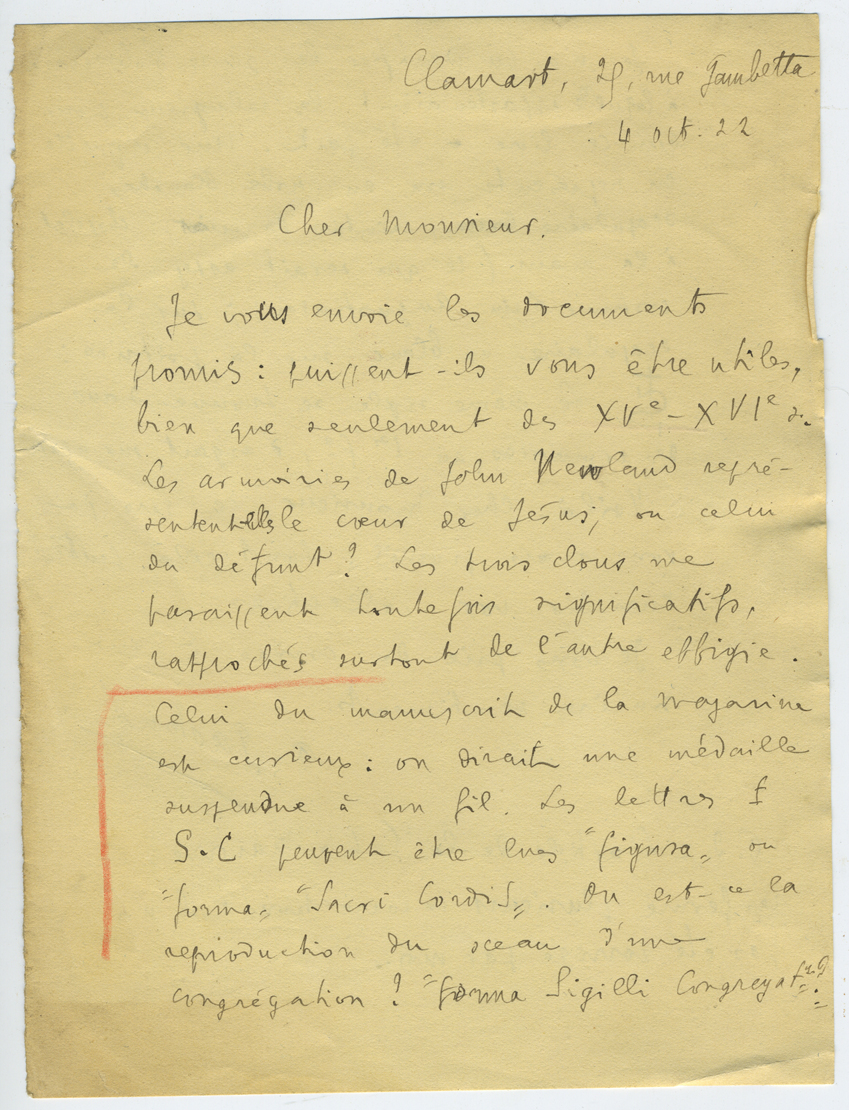 Clamart, 29, rue Gambetta
4 oct. 22
Cher Monsieur.
Je vous envoie les documents
promis : puissent-ils vous être utiles,
bien que seulement des XVe - XVIe s.
Les armoiries de John Newland repré-
sentent-elles le cœur de Jésus, ou celui
du défunt ? Les trois clous me
paraissent toutefois significatifs,
rapprochés surtout de l'autre effigie.
Celui du manuscrit de la magasine
est curieux : on dirait une médaille
suspendue à un fil. Les lettres f
S. C peuvent être lues "figura" ou
"forma" "Sacri Cordis". Ou est-ce la
reproduction du sceau d'une
congrégation ? "forma Sigilli